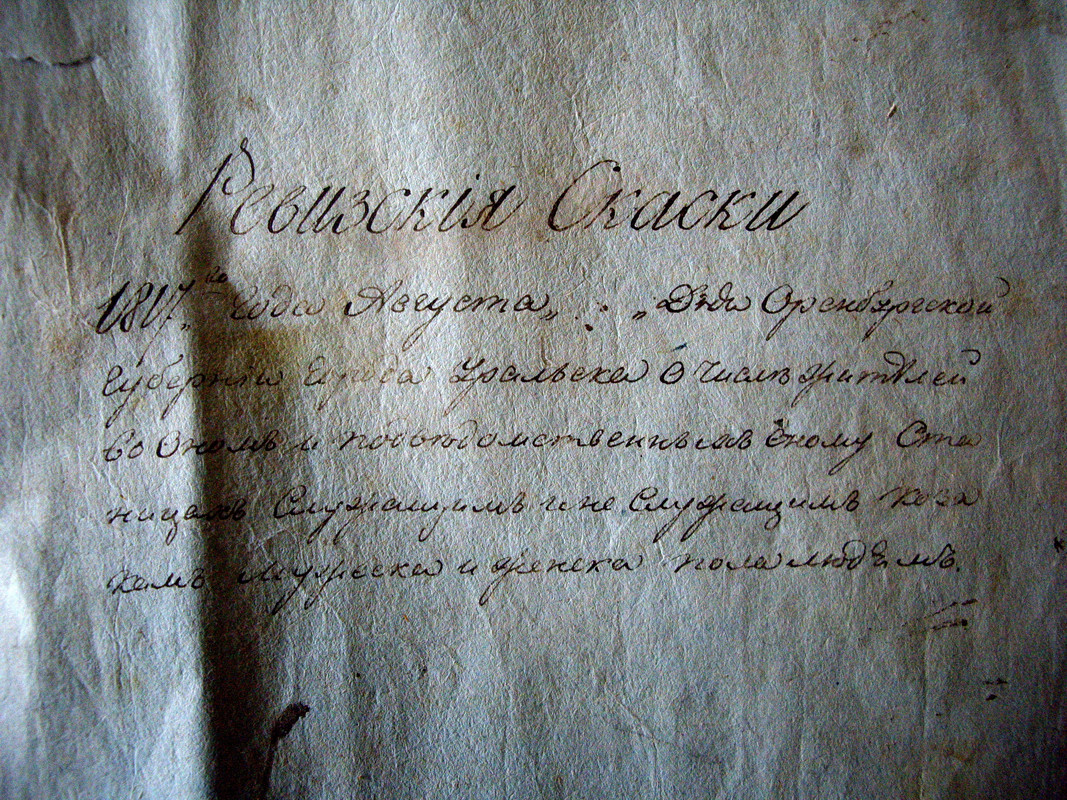 Ревизскія Скаски
1817го года Августа „ . „ Дня Оренбургской
Губерніи города Уральска О числѣ жителей
во Ономъ и подведомственнымъ Оному Ста
ницамъ Служащимъ и не Служащимъ каза
камъ Мужеска и женска пола людемъ.